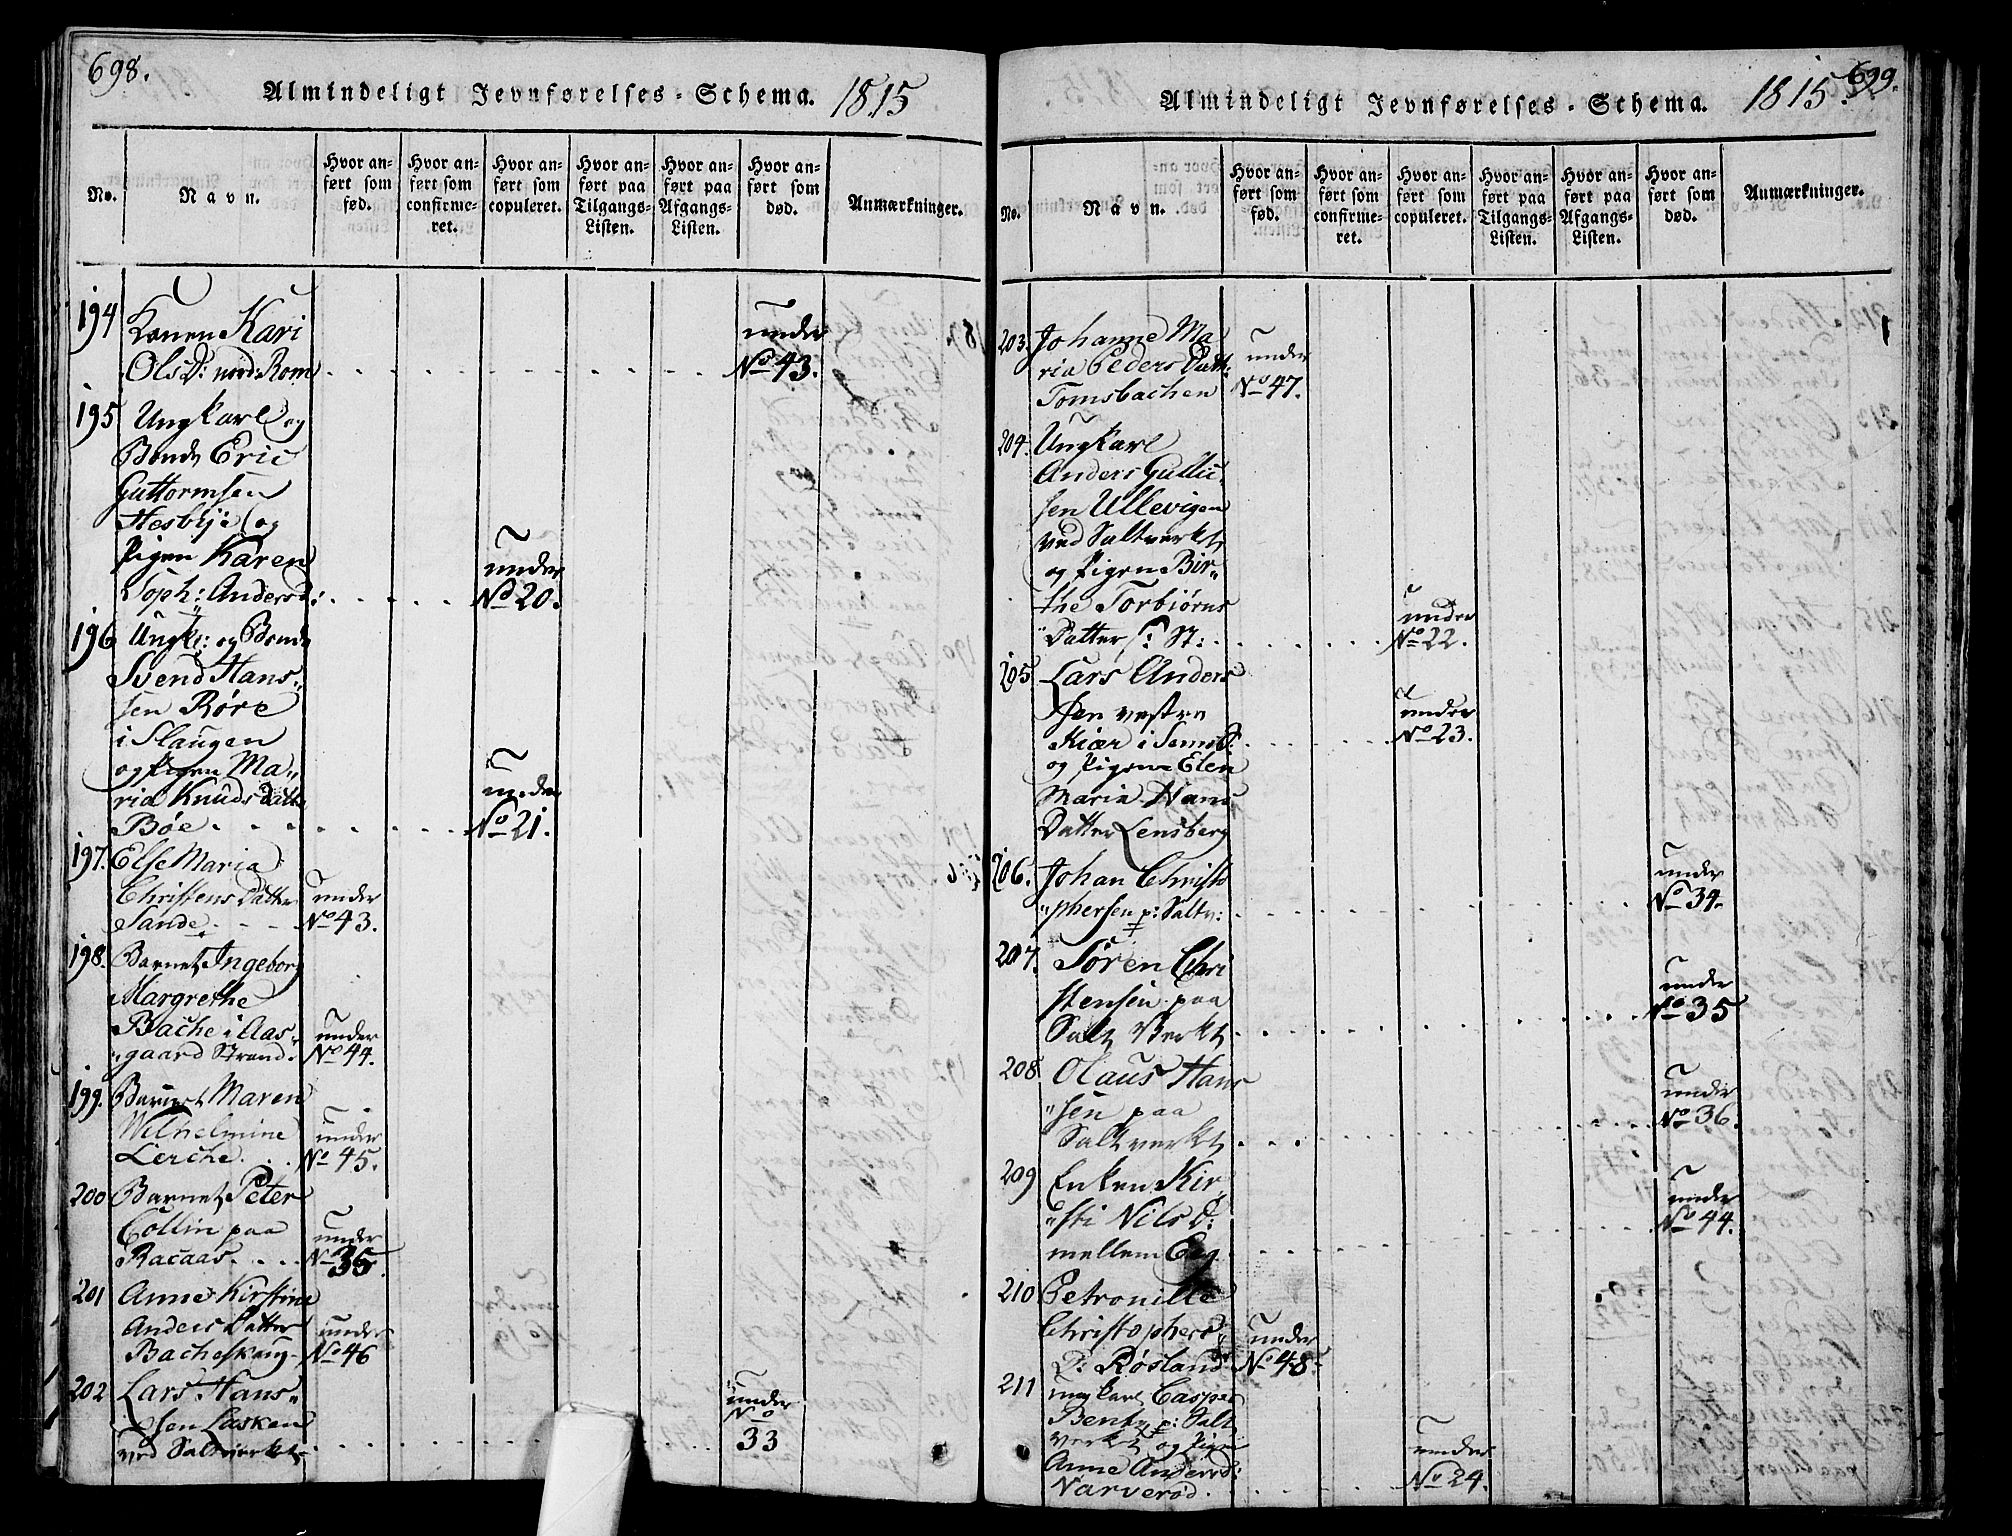 698.
Almindeligt Jevnførelses-Schema. 1815
No.
Navn.
Hvor an-
ført som
fød.
Hvor an-
ført som
confirme-
ret.
Hvor an-
ført som
copuleret.
Hvor an-
ført paa
Tilgangs-
Listen.
Hvor an-
ført paa
Afgangs-
Listen.
Hvor an-
ført som
død.
Anmærkninger.
194
Konen Kari
Ols D: nord: Rom
under
No 43.
195
Ungkarl og
Bonde Eric
Guttormsen
Hesbye og
Pigen Karen
Soph: Andersd:
under
No 20.
196
Ungk: og Bonde
Svend Hans„
sen Røre
i Slaugen
og Pigen Ma„
ria Knuds Datter
Bøe
under
No 21.
197.
Else Maria
Christens Datter
Sande
under
No 43.
198.
Barnet Ingeborg
Margrethe
Bache i Aas„
„gaard Strand.
under
No 44.
199.
Barnet Maren
Wilhelmine
Lerche
under
No 45.
200
Barnet Peter
Collin paa
Racaas
under
No 35.
201
Anne Kirstine
Anders Datter
Bacheskaug
under
No 46
202
Lars Hans„
sen Lasken
ved Saltverket
under
No
33
699.
Almindeligt Jevnførelses-Schema. 1815.
No.
Navn.
Hvor an-
ført som
fød.
Hvor an-
ført som
confirme-
ret.
Hvor an-
ført som
copuleret.
Hvor an-
ført paa
Tilgangs-
Listen.
Hvor an-
ført paa
Afgangs-
Listen.
Hvor an-
ført som
død.
Anmærkninger.
203.
Johanne Ma
ria Peders Datt:
Tomsbachen
under
No 47.
204.
Ungkarl
Anders Gullic
sen Ullevigen
ved Saltverket
og Pigen Bir„
the Torbiørns
Datter St:
under
No 22.
205.
Lars Anders
sen vestre
Kiær i Semb S:
og Pigen Elen
Maria Hans
Datter Lensberg
under
No 23.
206.
Johan Christo
„phersen p: Saltv:
under
No 34.
207.
Sören Chri
stensen paa
Salt Verket
under
No 35
208
Olaus Hans
„sen paa
Saltverket
under
No 36.
209
Enken Kir„
„sti Nils D:
mellem Eeg
under
No 44.
210
Petronille
Christophers
D: Røsland
under
No 48.
211
ungkarl Casper
Bentz p: Salt
verket og Pigen
Anne Andersd:
Narverød
under
No 24.